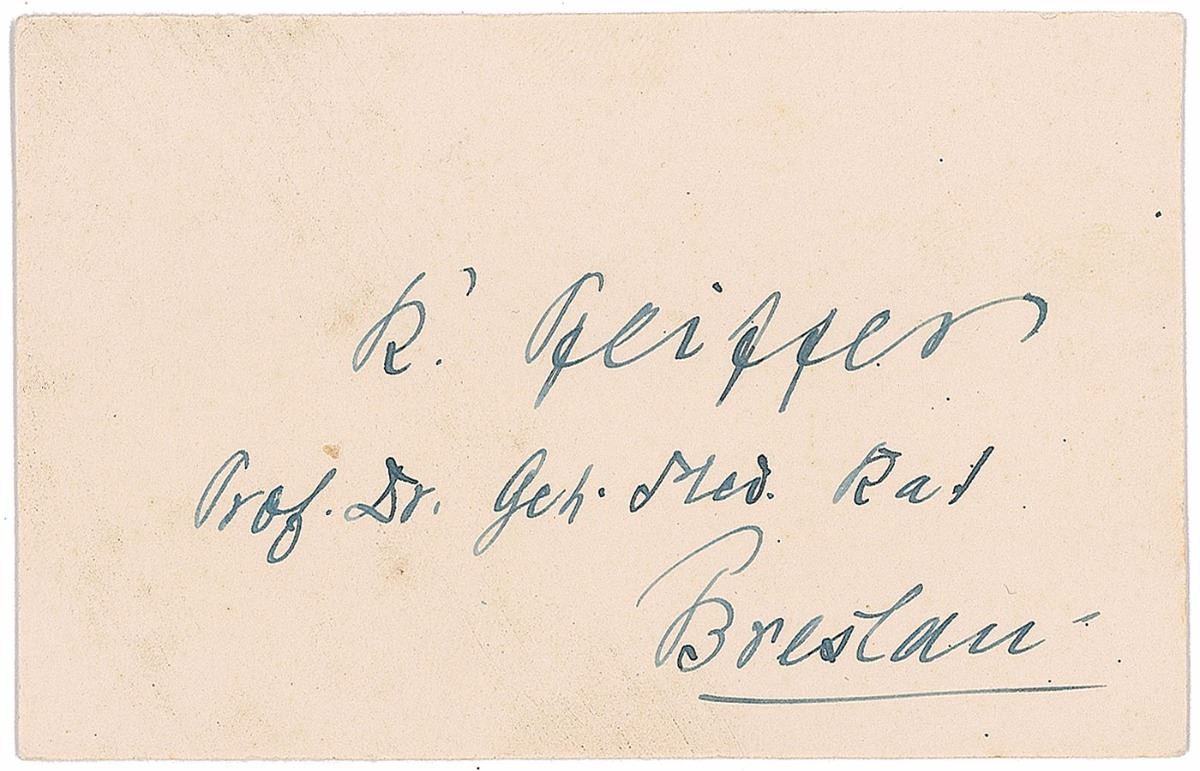 R. Pfeiffer
Prof. Dr. Geh. Med. Rat
Breslau